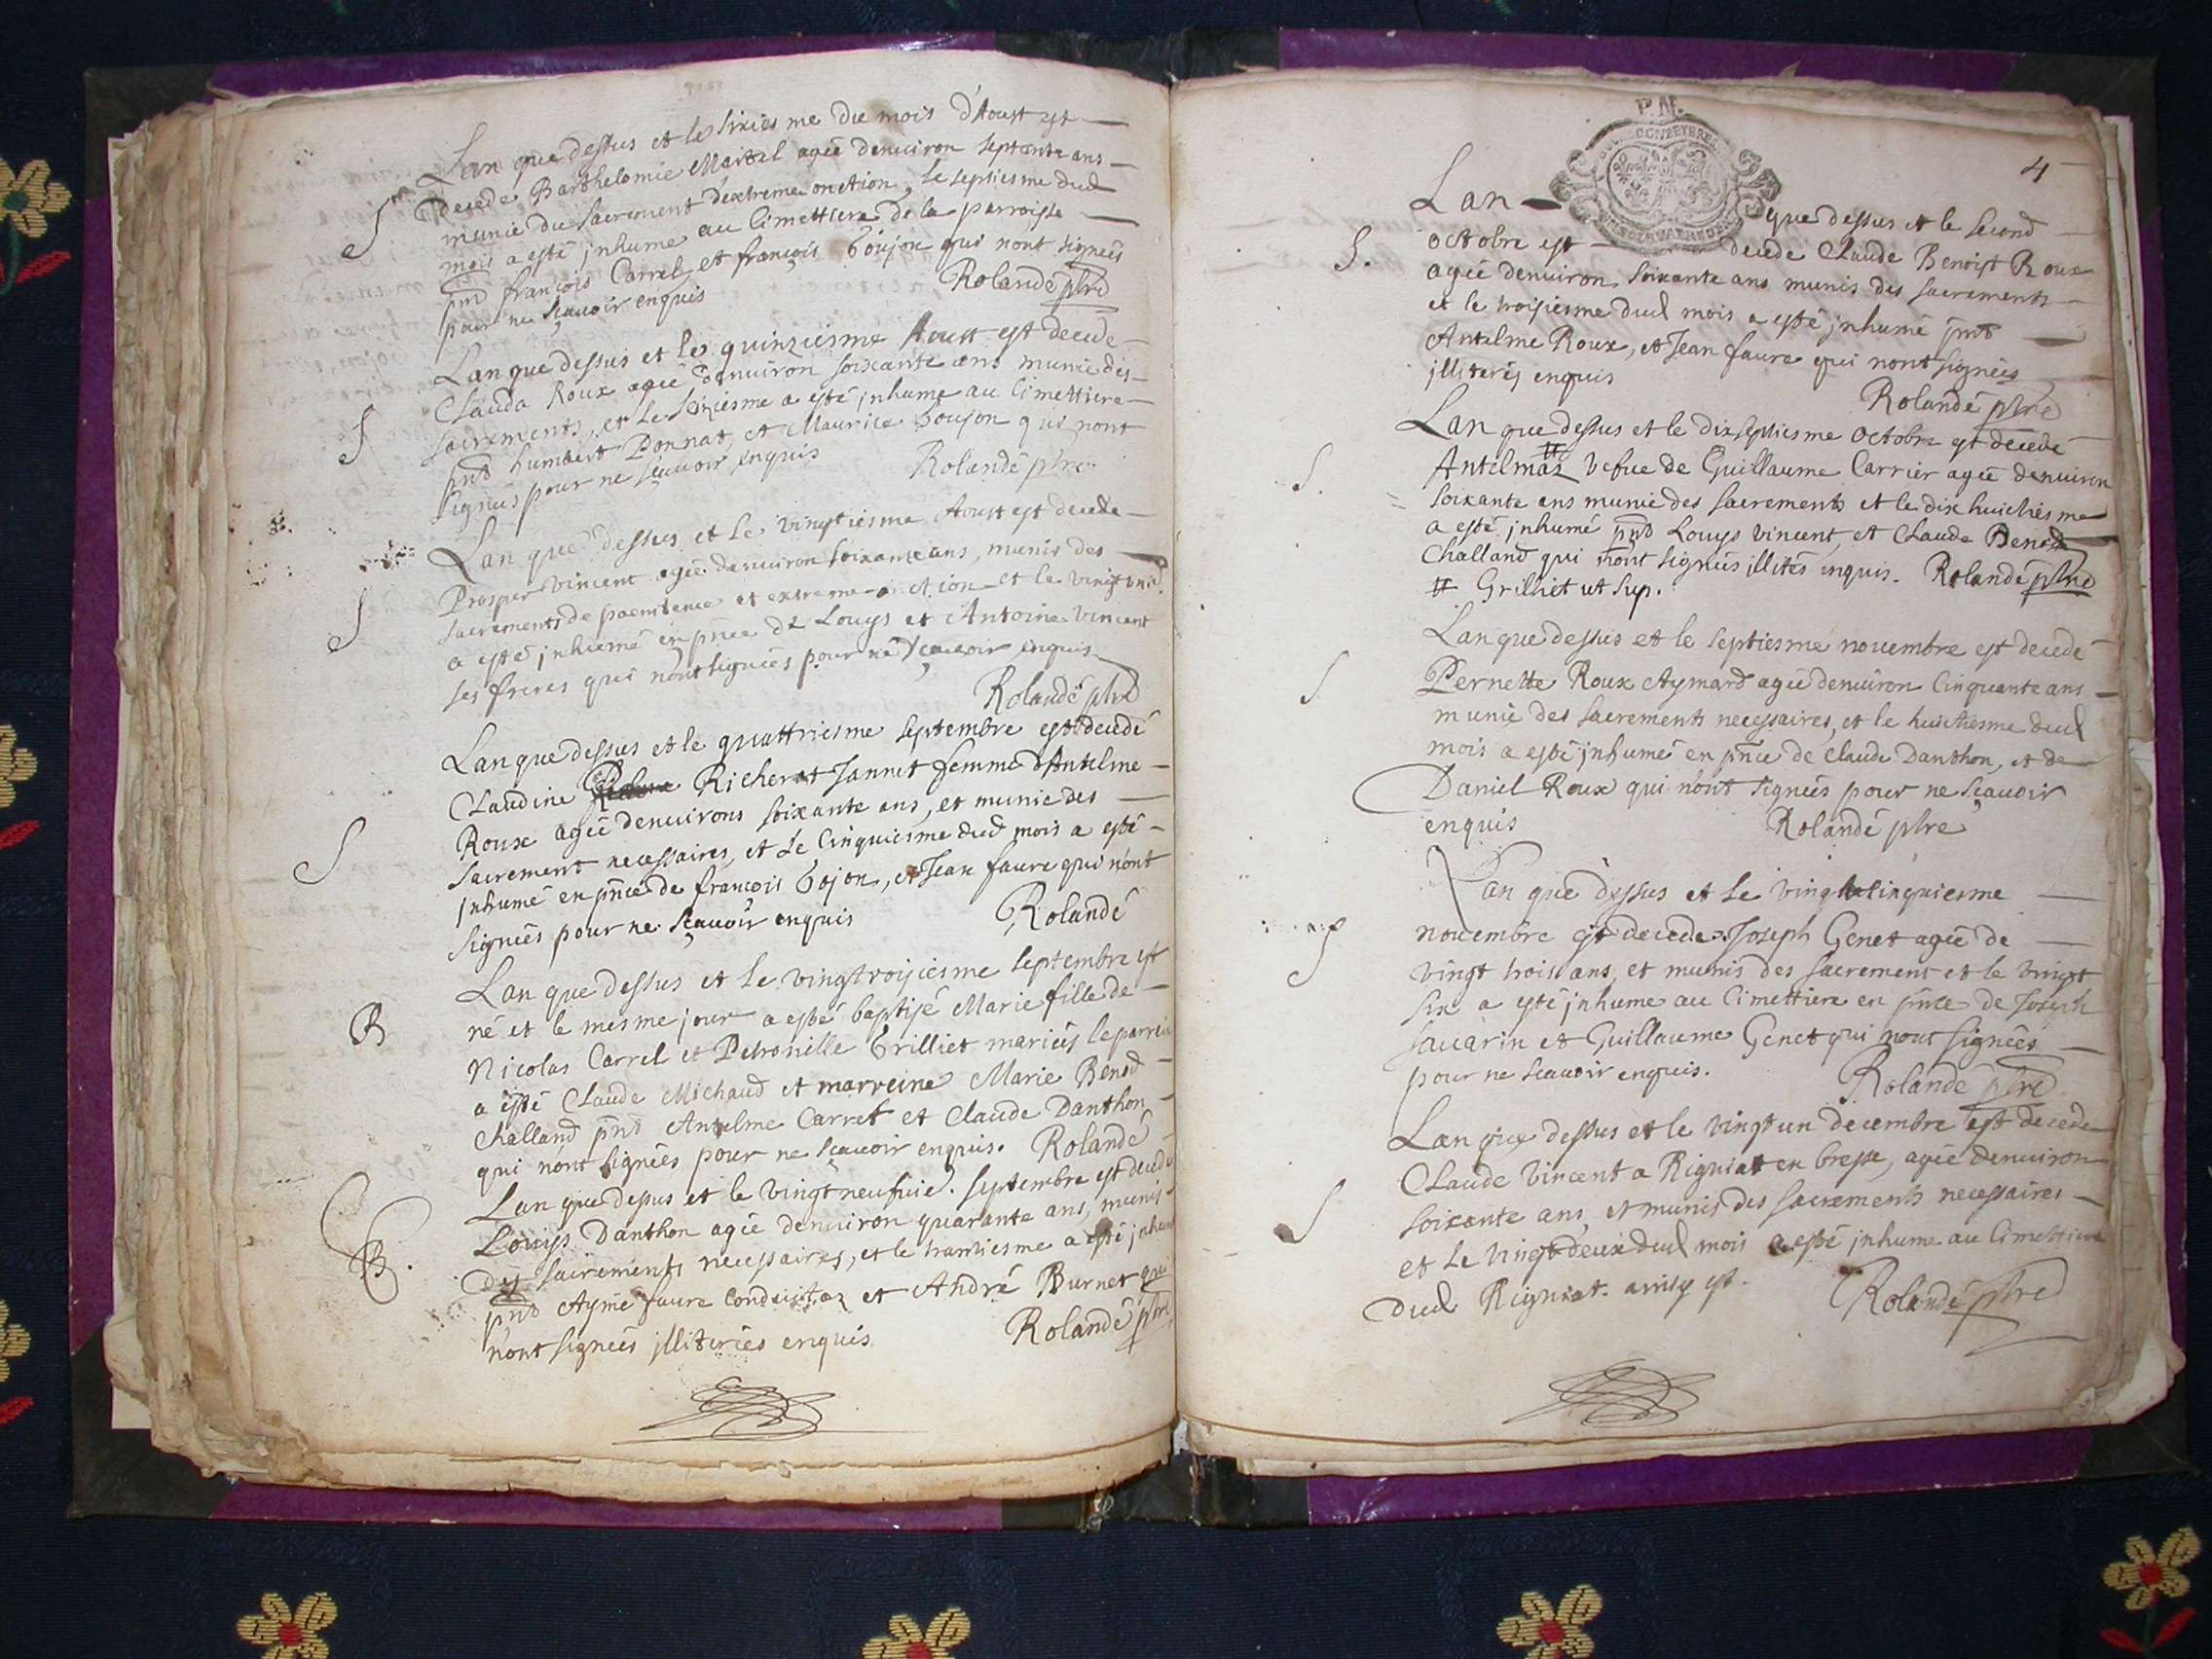 Lan que dessus et le sixiesme du mois d'Aoust est
decede Barthelomie Martel agée denuiron septante ans
munie du sacrement dextreme onction, le septiesme dud
mois a esté jnhume au Cimettiere de la parroisse
pnts françois Carrel et françois Goujon qui nont signées
pour ne sçauoir enquis Rolande ptre
Lan que dessus et le quinziesme Aoust est decede
Clauda Roux agée denuiron soixante ans munie des
sacrements, et le seiziesme a esté jnhume au Cimettiere
pnts humbert Donnat, et Maurice Goujon qui nont
signées pour ne sçauoir enquis Rolandé ptre
Lan que dessus et le vingtiesme Aoust est decede
Prosper Vincent agée denuiron soixante ans, munis des
sacrements de paenitence et extreme onction et le vingt
a esté jnhumé en pnce de Louys et Antoine Vincent
ses freres qui nont signées pour ne sçauoir enquis
Rolandé ptre
Lan que dessus et le quattriesme septembre est decedé
Claudine Richerot Jannet femme d'Antelme
Roux agée denuirons soixante ans, et munie des
sacrement necessaires, et le Cinquiesme dud mois a esté
jnhumé en pnce de françois Gojon, et Jean faure qui nont
signées pour ne sçauoir enquis Rolandé
Lan que dessus et le vingtroisiesme septembre est
B né et le mesme jour a esté baptisé Marie fille de
Nicolas Carrel et Petronille Grilliet mariés le parrin
a esté Claude Michaud et marreine Marie Benod
Challand pnts Antelme Carret et Claude Danthon
qui nont signées pour ne sçauoir enquis. Rolandé
Lan que dessus et le vingtneufuie. septembre est decedé
Louys Danthon agée denuiron quarante ans, munis
des sacrements necessaires, et le trantiesme a esté jnhumé
pnts Aymé faure et André Burnet qui
nont signées jlliterées enquis Rolandé ptre
P.N.
4
Lan que dessus et le second
S. octobre est decede Claude Benoist Roux
agée denuiron soixante ans munis des sacrements
et le troisiesme dud mois a esté jnhumé pnts
Antelme Roux, et Jean faure qui nont signées
jlliterés enquis Rolandé ptre
Lan que dessus et le dixseptiesme octobre est décedé
S. Antelmaz # Vefue de Guillaume Carrier agée denuiron
soixante ans munie des sacrements et le dix huictiesme
a esté jnhumé pnts Louys Vincent, et Claude Benod
Challand qui nont signées illités enquis. Rolandé ptre
# Grilliet ut sup.
Lan que dessus et le septiesme nouembre est decedé
S. Pernette Roux Aymard agée denuiron Cinquante ans
munie des sacrements necessaires, et le huictiesme dud
mois a esté jnhumé en pnce de Claude Danthon, et de
Daniel Roux qui nont signées pour ne sçauoir
enquis Rolandé ptre
Lan que dessus et le vingtcinquiesme
S nouembre est decede Joseph Genet agée de
vingt trois ans, et munis des sacrement et le vingt
six a esté jnhume au Cimettiere en pnce de Joseph
Sauarin et Guillaume Genet qui nont signées
pour ne sçauoir enquis. Rolandé ptre
Lan que dessus et le vingt un decembre est decede
Claude Vincent a Rigniat en bresse, agée denuiron
S soixante ans, et munis des sacrements necessaires
et le vingt deux dud mois a esté jnhume au Cimettiere
dud Rigniat. Rolandé ptre